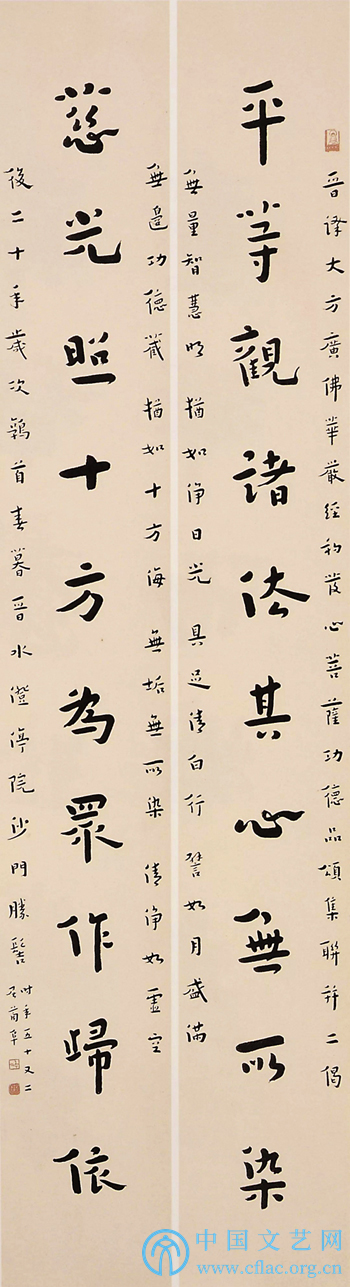 晉譯大方廣佛華嚴經初發心菩薩功德品頌集聯并二偈
平等觀諸法其心無所染
無量智慧明 猶如淨日光 具足清白行 譬如月盛滿
無邊功德藏 猶如十方海 無垢無所染 清淨如虛空
慈光照十方為眾作歸依
後二十年歲次鶉首春暮晉水澄渟院沙門勝髻
時年五十又二
中国文艺网
www.cflac.org.cn